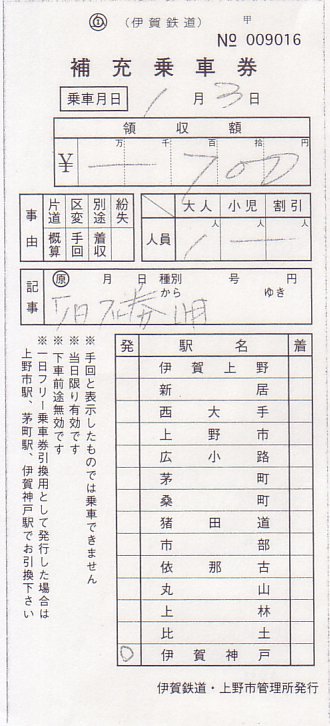 （伊賀鉄道） 甲
№ 009016
補充乗車券
乗車月日 1月3日
領収額
万 千 百 拾 円
￥ 700
事由 片道 区変 別途 紛失
概算 手回 着収
大人 小児 割引
人員 1人 人
記事 原 月 日 種別 号 円
から ゆき
発 駅名 着
伊賀上野
新居
西大手
上野市
広小路
茅町
桑町
猪田道
市部
依那古
丸山
上林
比土
○ 伊賀神戸
※手回と表示したものでは乗車できません
※当日限り有効です
※下車前途無効です
※一日フリー乗車券引換用として発行した場合は
上野市駅、茅町駅、伊賀神戸駅でお引換下さい
伊賀鉄道・上野市管理所発行